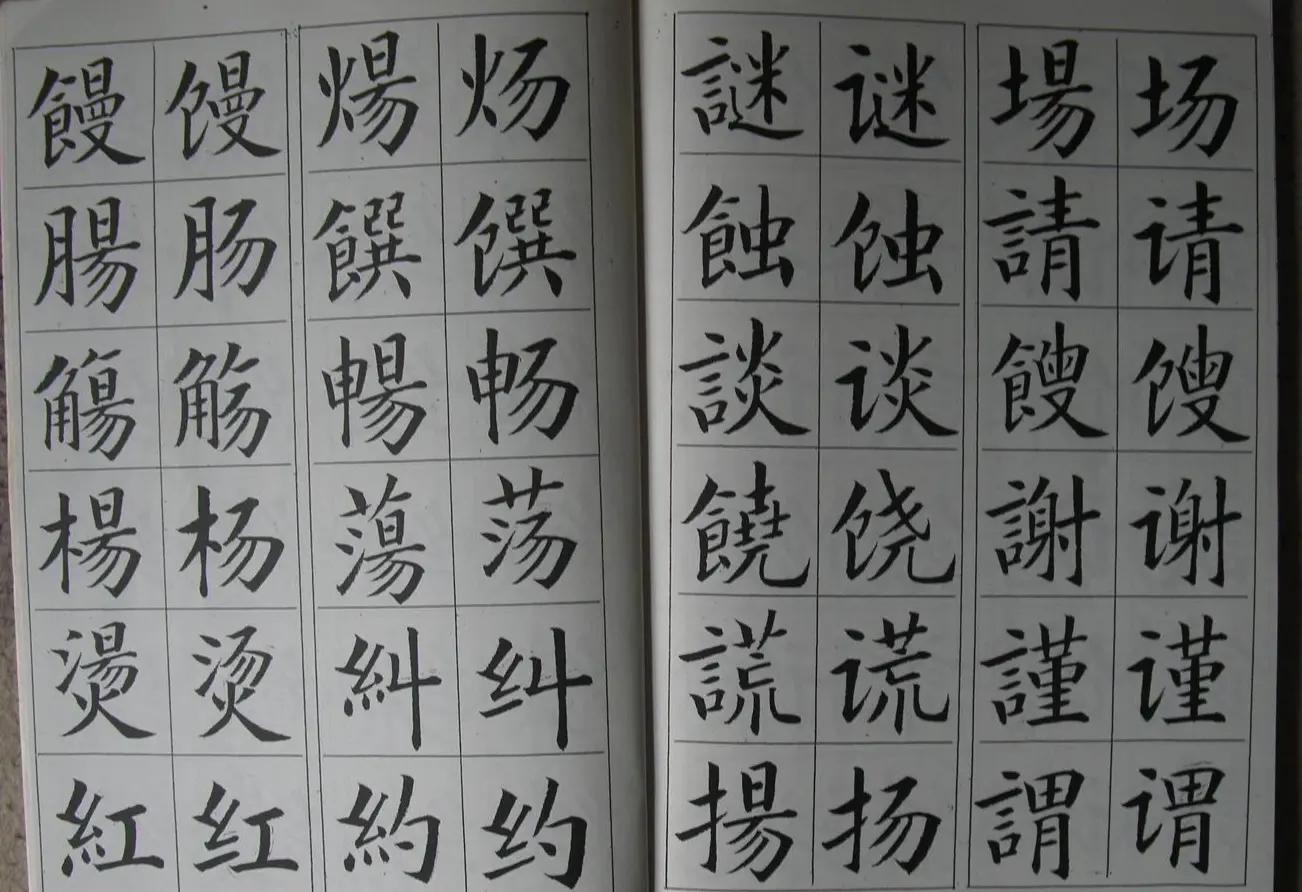 饅 馒 煬 炀
腸 肠 饌 馔
觴 觞 暢 畅
楊 杨 蕩 荡
燙 烫 糾 纠
紅 红 約 约
謎 谜 場 场
蝕 蚀 請 请
談 谈 餿 馊
饒 饶 謝 谢
謊 谎 謹 谨
揚 扬 謂 谓